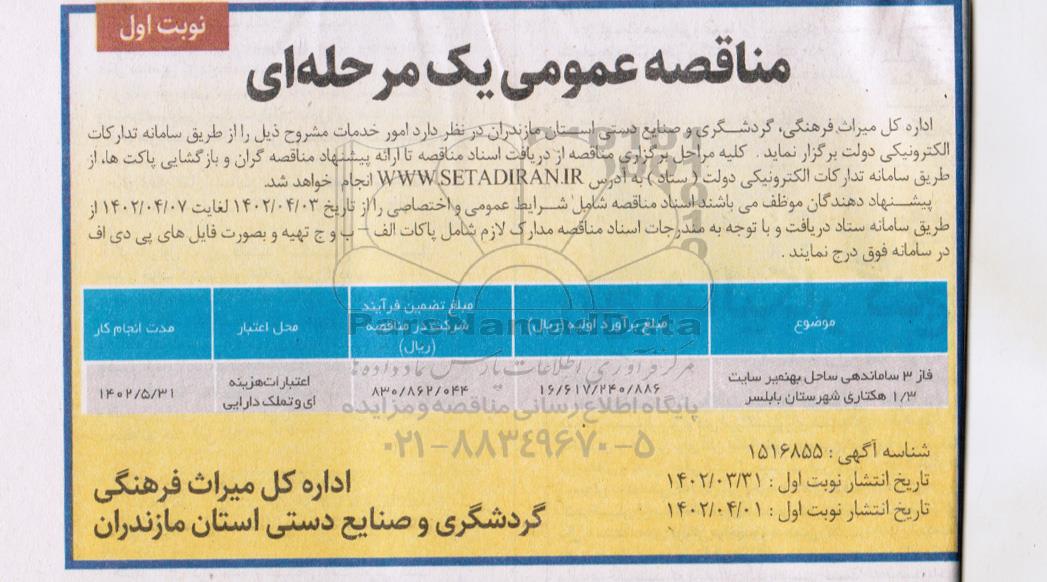 نوبت اول
مناقصه عمومی یک مرحله‌ای
اداره کل میراث فرهنگی، گردشگری و صنایع دستی استان مازندران در نظر دارد امور خدمات مشروح ذیل را از طریق سامانه تدارکات
الکترونیکی دولت برگزار نماید . کلیه مراحل برگزاری مناقصه از دریافت اسناد مناقصه تا ارائه پیشنهاد مناقصه گران و بازگشایی پاکت ها، از
طریق سامانه تدارکات الکترونیکی دولت ( ستاد ) به آدرس WWW.SETADIRAN.IR انجام خواهد شد.
پیشنهاد دهندگان موظف می باشند اسناد مناقصه شامل شرایط عمومی و اختصاصی را از تاریخ ۱۴۰۲/۰۴/۰۳ لغایت ۱۴۰۲/۰۴/۰۷ از
طریق سامانه ستاد دریافت و با توجه به مندرجات اسناد مناقصه مدارک لازم شامل پاکات الف – ب و ج تهیه و بصورت فایل های پی دی اف
در سامانه فوق درج نمایند .
موضوع
مبلغ برآورد اولیه (ریال)
مبلغ تضمین فرآیند
شرکت در مناقصه
(ریال)
محل اعتبار
مدت انجام کار
فاز ۳ ساماندهی ساحل بهنمیر سایت
۱/۳ هکتاری شهرستان بابلسر
۱۶/۶۱۷/۲۴۰/۸۸۶
۸۳۰/۸۶۲/۰۴۴
اعتبارات هزینه
ای و تملک دارایی
۱۴۰۲/۵/۳۱
ParsNamadData
مرکز فرآوری اطلاعات پارس نماد داده ها
پایگاه اطلاع رسانی مناقصه و مزایده
۰۲۱-۸۸۳۴۹۶۷۰-۵
شناسه آگهی : ۱۵۱۶۸۵۵
تاریخ انتشار نوبت اول : ۱۴۰۲/۰۳/۳۱
تاریخ انتشار نوبت اول : ۱۴۰۲/۰۴/۰۱
اداره کل میراث فرهنگی
گردشگری و صنایع دستی استان مازندران